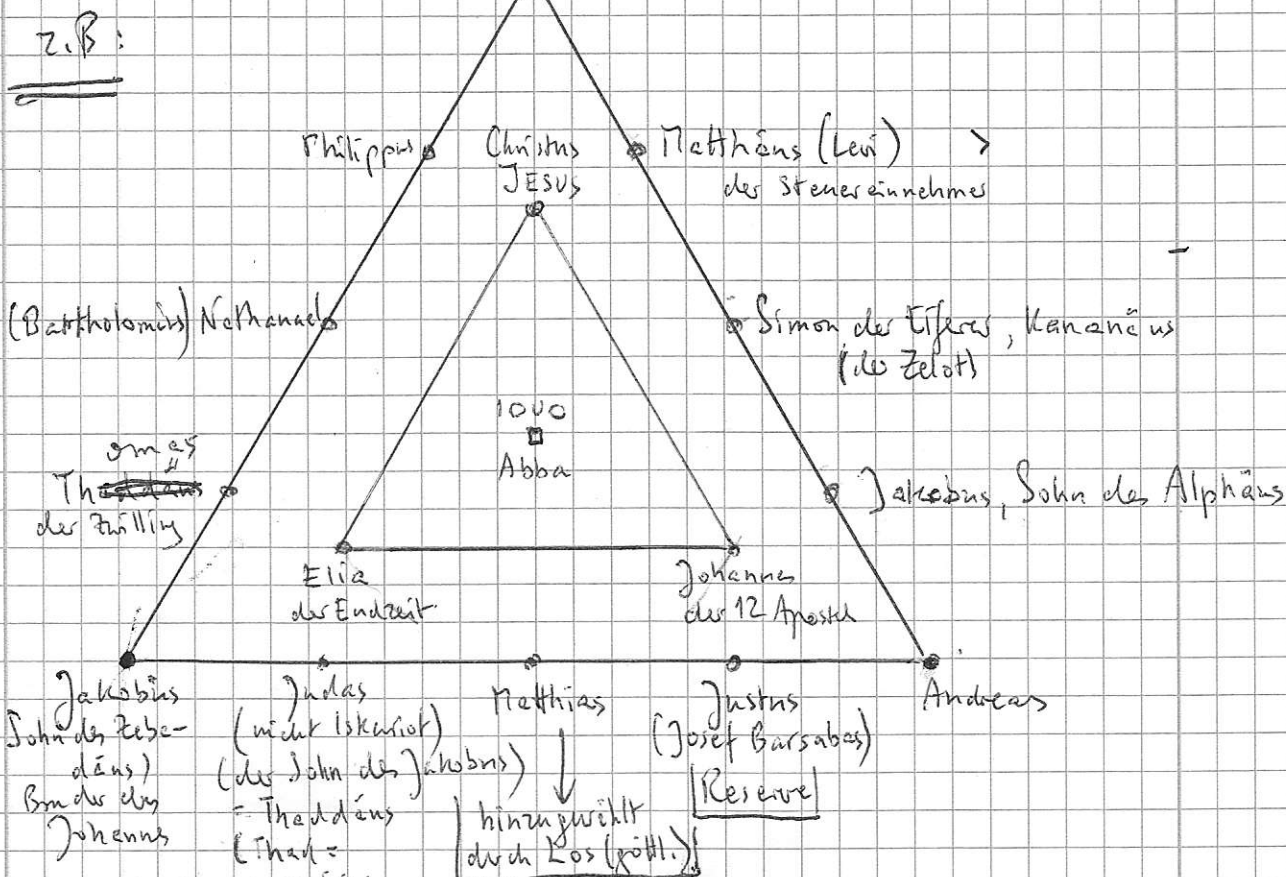 z.B:
Philippus
Christus
JESUS
Matthäus (Levi) >
der Steuereinnehmer
(Bartholomäus) Nathanael
Simon der Eiferer, Kananäus
(der Zelot)
IOVO
Abba
omas
Thaddäus
der Zwilling
Jakobus, Sohn des Alphäus
Elia
der Endzeit
Johannes
der 12 Apostel
Jakobus
Sohn des Zebe-
däus)
Bruder des
Johannes
Judas
(nicht Iskariot)
(der Sohn des Jakobus)
= Thaddäus
(Thad =
Matthias
hinzugewählt
durch Los (göttl.)
Justus
(Josef Barsabas)
Reserve
Andreas